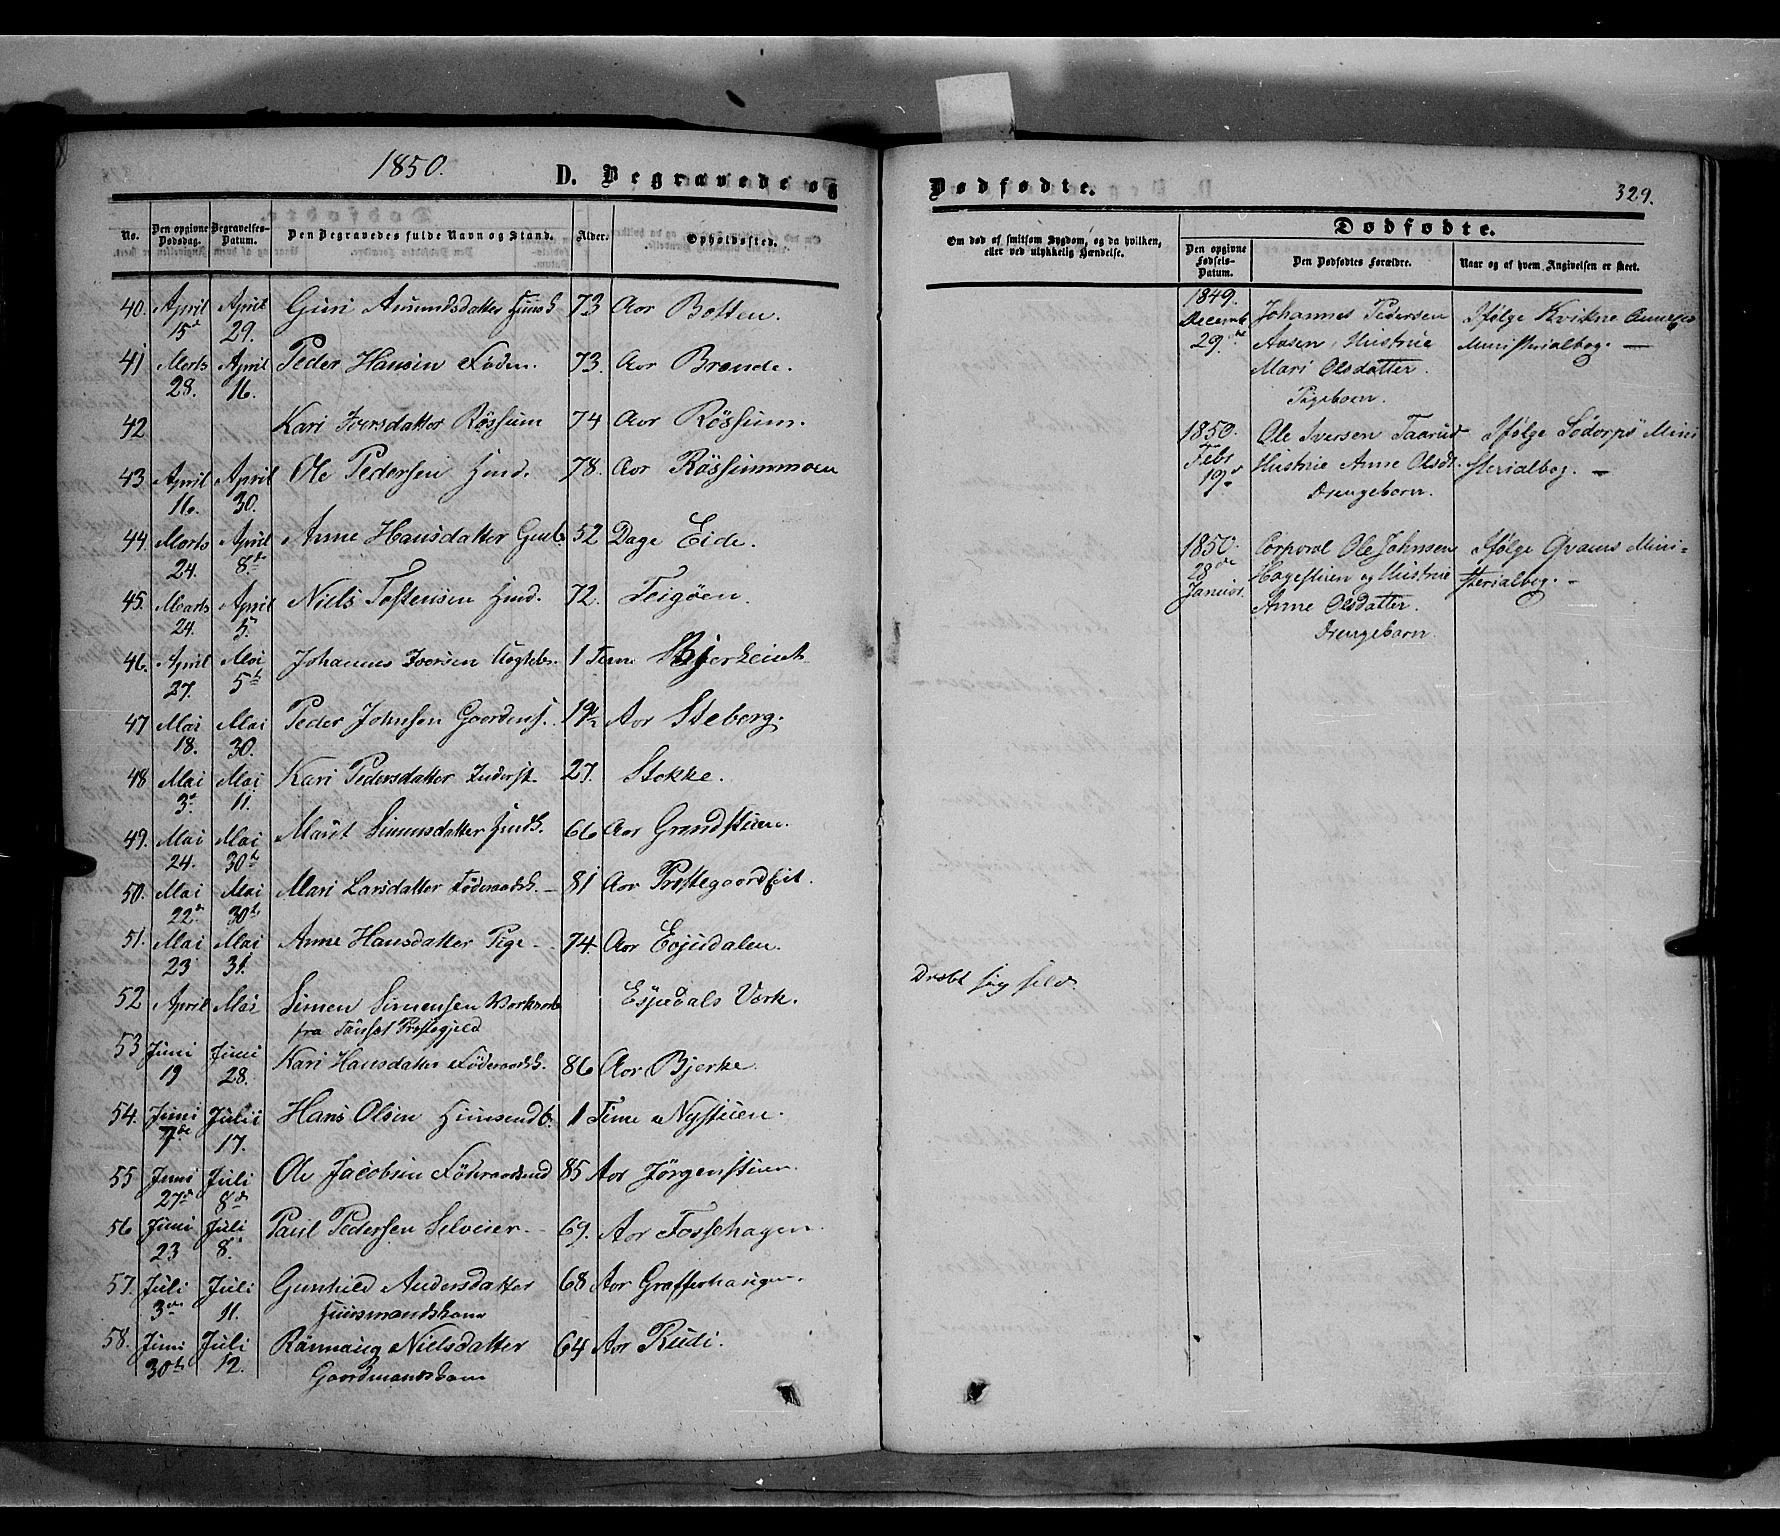 1850.
D. Begravede og
No.
Den opgivne Dødsdag.
Begravelses-Datum.
Den Begravedes fulde Navn og Stand.
Alder.
Opholdssted.
40. April 15de April 29. Guri Amundsdatter Huusk 73 Aar Botten.
41 Marts 28. April 16. Peder Hansen Föder. 73. Aar Brænde.
42 Kari Iversdatter Røssum 74 Aar Røssum.
43 April 16. April 30. Ole Pedersen Hmd. 78. Aar Røssummoen
44. Marts 24. April 8de Anne Hansdatter 52 Dage Eide.
45. Marts 24. April 5. Niels Tostensen Hmd. 72. Teigöen.
46. April 27. Mai 5te Johannes Iversen 1 Time
47 Mai 18. Mai 30. Peder Johnsen 19 1/2 Aar Steberg.
48 Mai 3. Mai 11. Kari Pedersdatter Inderst. 27. Stokke.
49. Mai 24. Mai 30te Marit Simensdatter 66 Aar Grandstuen.
50. Mai 22de Mai 30te Mari Larsdatter Föderaadsk. 81 Aar Præstegaardseit.
51. Mai 23 Mai 31. Anne Hansdatter Pige 74. Aar Espedalen.
52 April Mai Simen Simensen Espedals Værk.
fra Tönset Præstegjeld
53 Juni 19 Juni 28. Kari Hansdatter Föderaadsk. 86 Aar Bjerke.
54. Juni 7de Julii 17. Hans Olsen Huusmdb. 1 Time Nystuen.
55 Juni 27de Juli 8de Ole Jacobsen Föderaadsmd 85 Aar Jörgenstuen.
56 Juni 23 Juli 8. Paul Pedersen Selveier 69. Aar Fossehagen.
57. Juli 3die Juli 11. Gunhild Andersdatter 68 Aar Grafferhaugen.
Huusmandskone
58. Juni 30te Juli 12. Rönnaug Nielsdatter 64 Aar Rudi.
Gaardmandskone
Dødfødte.
329.
Om død af smitsom Sygdom, og da hvilken,
eller ved ulykkelig Hændelse.
Dødfødte.
Den opgivne Fødsels-Datum.
Den Dødfødtes Forældre.
Naar og af hvem Angivelsen er skeet.
1849. Johannes Pedersen Ifølge Kvikne Annexes
Decemb. 29de Aasen, Hustrue Ministerialbog. —
Mari Olsdatter.
Pigebarn.
1850. Ole Iversen Taarud Ifølge Södorps Mini
Febr. 19de Hustrue Anne Olsdt. sterialbog. —
Drengebarn.
1850. Corporal Ole Johnsen Ifølge Qvams Mini-
28de Hagestuen og Hustrue sterialbog. —
Januar. Anne Olsdatter.
Drengebarn.
Dræbt sig selv.